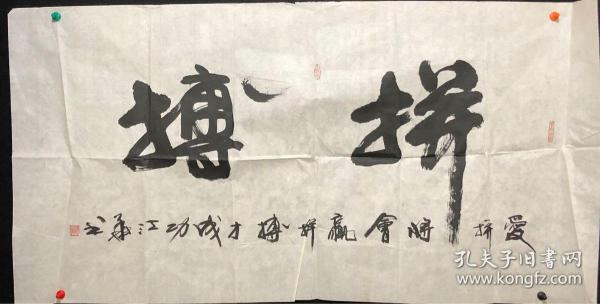 拼搏
愛拼將會贏拼搏才成功江華书
孔夫子旧书网
www.kongfz.com